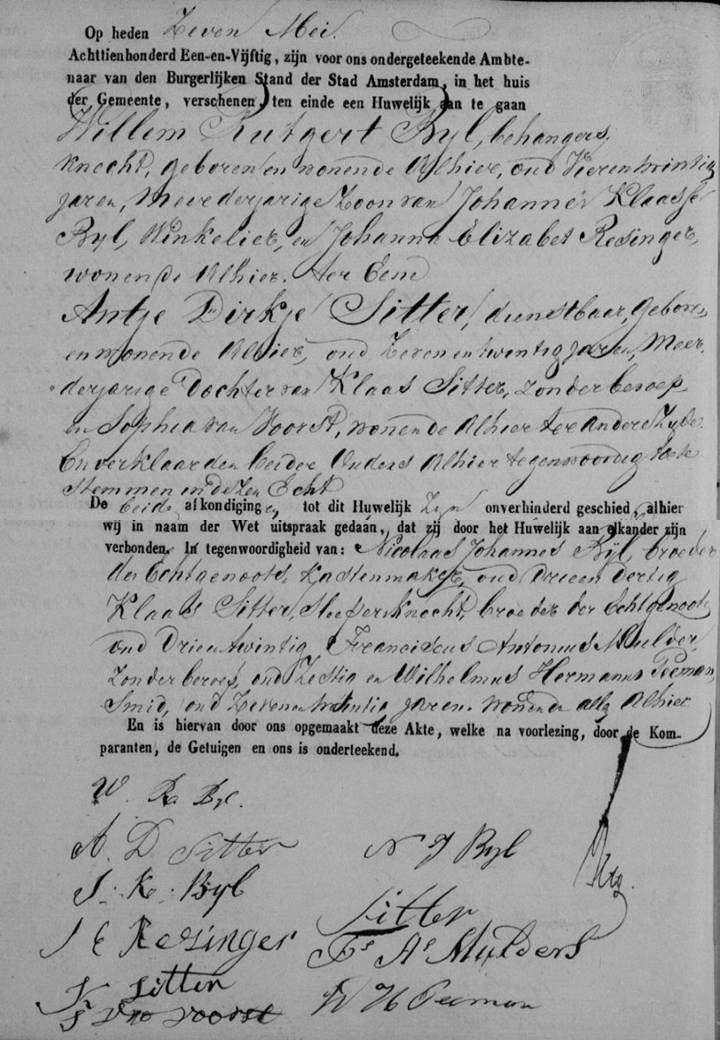 Op heden Zeven Mei.
Achttienhonderd Een-en-Vijftig, zijn voor ons ondergeteekende Ambte-
naar van den Burgerlijken Stand der Stad Amsterdam, in het huis
der Gemeente, verschenen, ten einde een Huwelijk aan te gaan
Willem Rutgert Byl, behangers,
knecht, geboren en wonende Alhier, oud Vierentwintig
jaren, Meerderjarige Zoon van Johannes Klaasse
Byl, Winkelier, en Johanna Elizabet Resinger,
wonende Alhier. ter Eene
Antje Dirkje Sitter, dienstbaar, gebore,
en wonende Alhier, oud Zevenentwintig jaren, Meer-
derjarige Dochter van Klaas Sitter, zonder beroep
en Sophia van Voorst, wonende Alhier ter andere Zyde.
En verklaarden beider Ouders Alhier tegenwoordig toete
stemmen in dezen Echt
De beide afkondigingen tot dit Huwelijk Zyn onverhinderd geschied, alhier
wij in naam der Wet uitspraak gedaan, dat zij door het Huwelijk aan elkander zijn
verbonden. In tegenwoordigheid van: Nicolaas Johannes Byl, broeder
des Echtgenoots, Kastenmaker, oud Drieendertig
Klaas Sitter, Slepersknecht, broeder der Echtgenoote
oud Drieentwintig, Franciscus Antonius Mulder,
Zonder beroep, oud Zestig en Wilhelmus Hermanus Peeman,
Smid, oud Zevenentwintig jaren. wonende alle Alhier
En is hiervan door ons opgemaakt deze Akte, welke na voorlezing, door de Kom-
paranten, de Getuigen en ons is onderteekend.
W. Rs Byl.
A. D. Sitter
N J Byl
J. K. Byl
J E Resinger
Sitter
Fs As Mulders
K Sitter
S van Voorst
W H Peeman